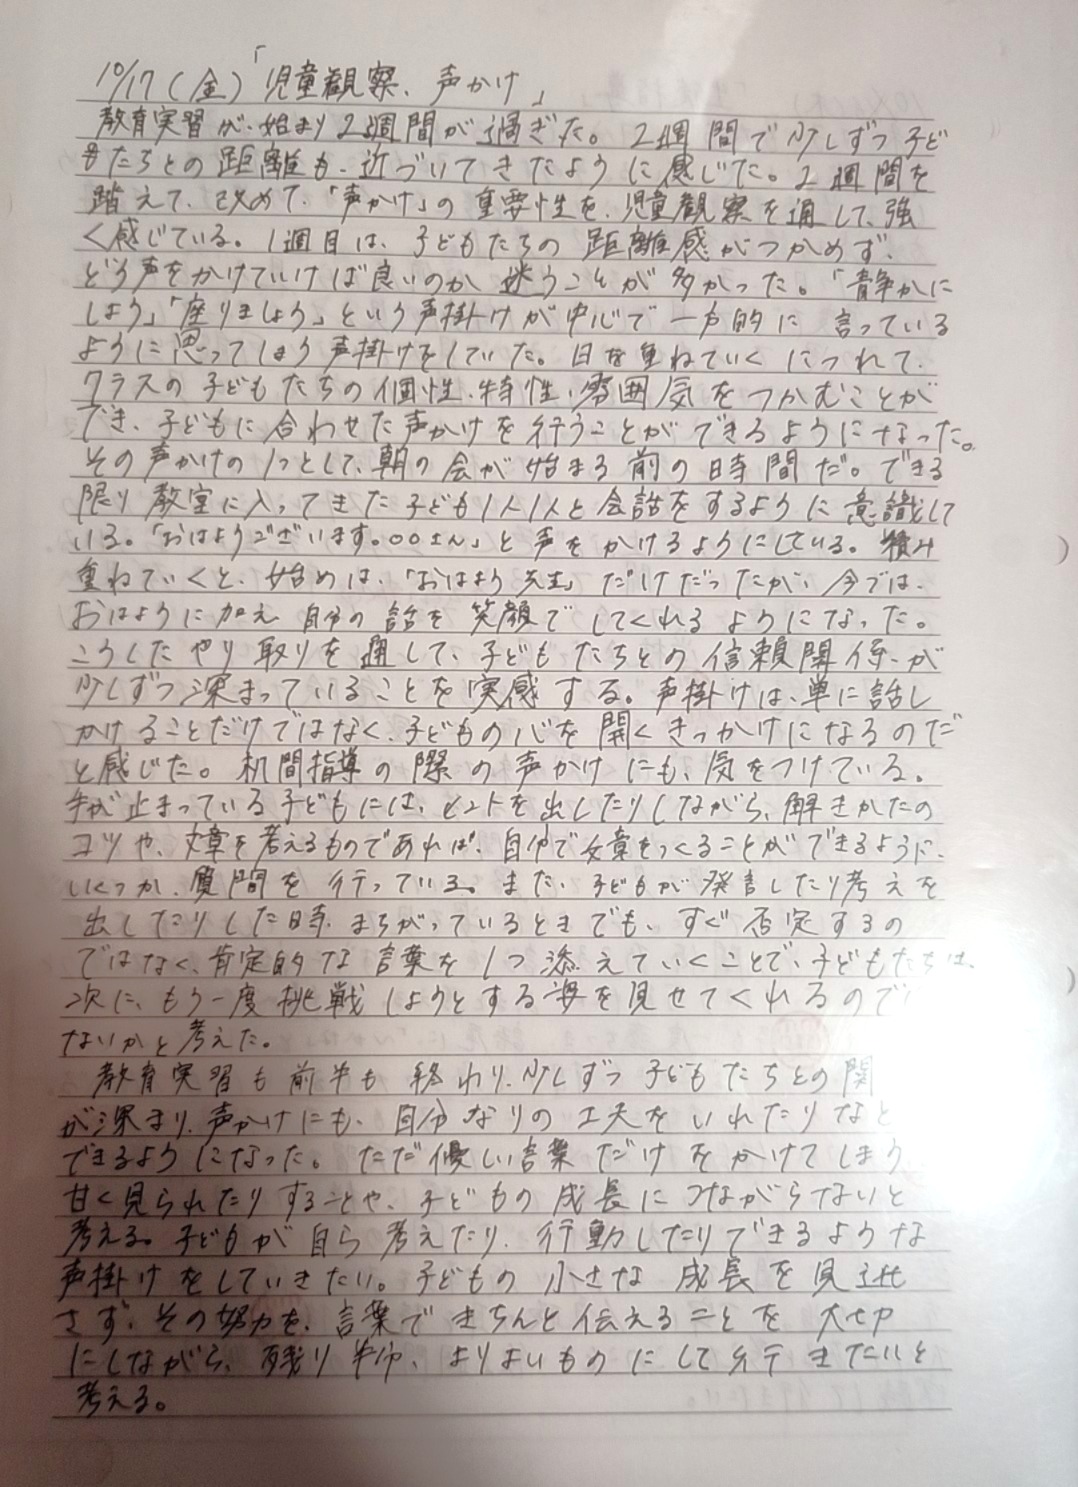 10/17(金)「児童観察、声かけ」
教育実習が、始まり2週間が過ぎた。2週間で少しずつ子ど
もたちとの距離も、近づいてきたように感じた。2週間を
踏えて、改めて、「声かけ」の重要性を、児童観察を通して、強
く感じている。1週目は、子どもたちの距離感がつかめず、
どう声をかけていけば良いのか迷うことが多かった。「静かに
しよう」「座りましょう」という声掛けが中心で一方的に言っている
ように思ってしまう声掛けをしていた。日を重ねていくにつれて、
クラスの子どもたちの個性、特性、雰囲気をつかむことが
でき、子どもに合わせた声かけを行うことができるようになった。
その声かけの1つとして、朝の会が始まる前の時間だ。できる
限り教室に入ってきた子ども1人1人と会話をするように意識して
いる。「おはようございます。○○さん」と声をかけるようにしている。積み
重ねていくと、始めは、「おはよう先生」だけだったが、今では、
おはように加え自分の話を笑顔でしてくれるようになった。
こうしたやり取りを通して、子どもたちとの信頼関係が
少しずつ深まっていることを実感する。声掛けは、単に話し
かけることだけではなく、子どもの心を開くきっかけになるのだ
と感じた。机間指導の際の声かけにも、気をつけている。
手が止まっている子どもには、ヒントを出したりしながら、解きかたの
コツや、文章を考えるものであれば、自分で文章をつくることができるように、
いくつか、質問を行っている。また、子どもが発言したり考えを
出したりした時、まちがっているときでも、すぐ否定するの
ではなく、肯定的な言葉を1つ添えていくことで、子どもたちは、
次に、もう一度挑戦しようとする姿を見せてくれるので
ないかと考えた。
教育実習も前半も終わり、少しずつ子どもたちとの関
が深まり、声かけにも、自分なりの工夫をいれたりなど
できるようになった。ただ優しい言葉だけをかけてしまう
甘く見られたりすることや、子どもの成長につながらないと
考える。子どもが自ら考えたり、行動したりできるような
声掛けをしていきたい。子どもの小さな成長を見逃
さず、その努力を、言葉できちんと伝えることを大切
にしながら、残り半分、よりよいものにして行きたいと
考える。